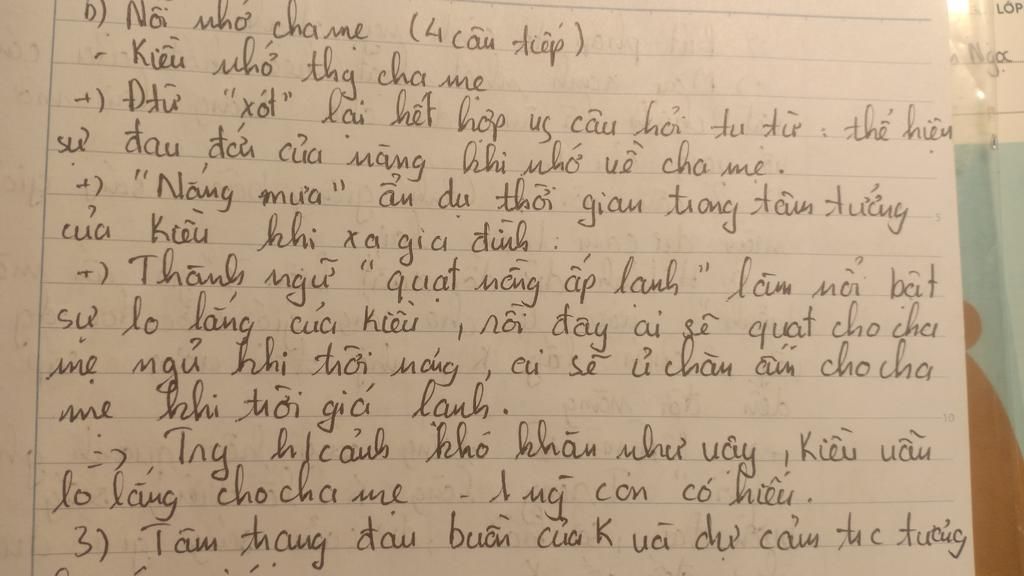 b) Nỗi nhớ cha mẹ (4 câu tiếp)
- Kiều nhớ thg cha mẹ
+) Đtừ "xót" lại kết hợp vs câu hỏi tu từ : thể hiện
sự đau đớn của nàng khi nhớ về cha mẹ.
+) "Nắng mưa" ẩn dụ thời gian trong tâm tưởng
của Kiều khi xa gia đình.
+) Thành ngữ "quạt nồng ấp lạnh" làm nổi bật
sự lo lắng của Kiều, rồi đây ai sẽ quạt cho cha
mẹ ngủ khi trời nóng, ai sẽ ủ chăn ấm cho cha
mẹ khi trời giá lạnh.
=> Tng h/cảnh khó khăn như vậy, Kiều vẫn
lo lắng cho cha mẹ - 1 ng con có hiếu.
3) Tâm trạng đau buồn của K và dự cảm tức tưởng
LỚP
Ngọc
5
10